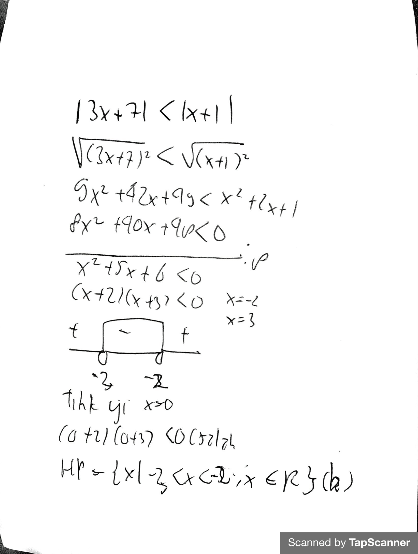 |3x+7| < |x+1|
√(3x+7)² < √(x+1)²
9x² +42x+49 < x² +2x+1
8x² +40x+48<0
:8
x²+5x+6 <0
(x+2)(x+3) <0 x=-2
x=3
+ - +
-3 -2
titik uji x=0
(0+2)(0+3) <0 (salah
HP = {x|-3<x<-2, x ∈ R} (b)
Scanned by TapScanner